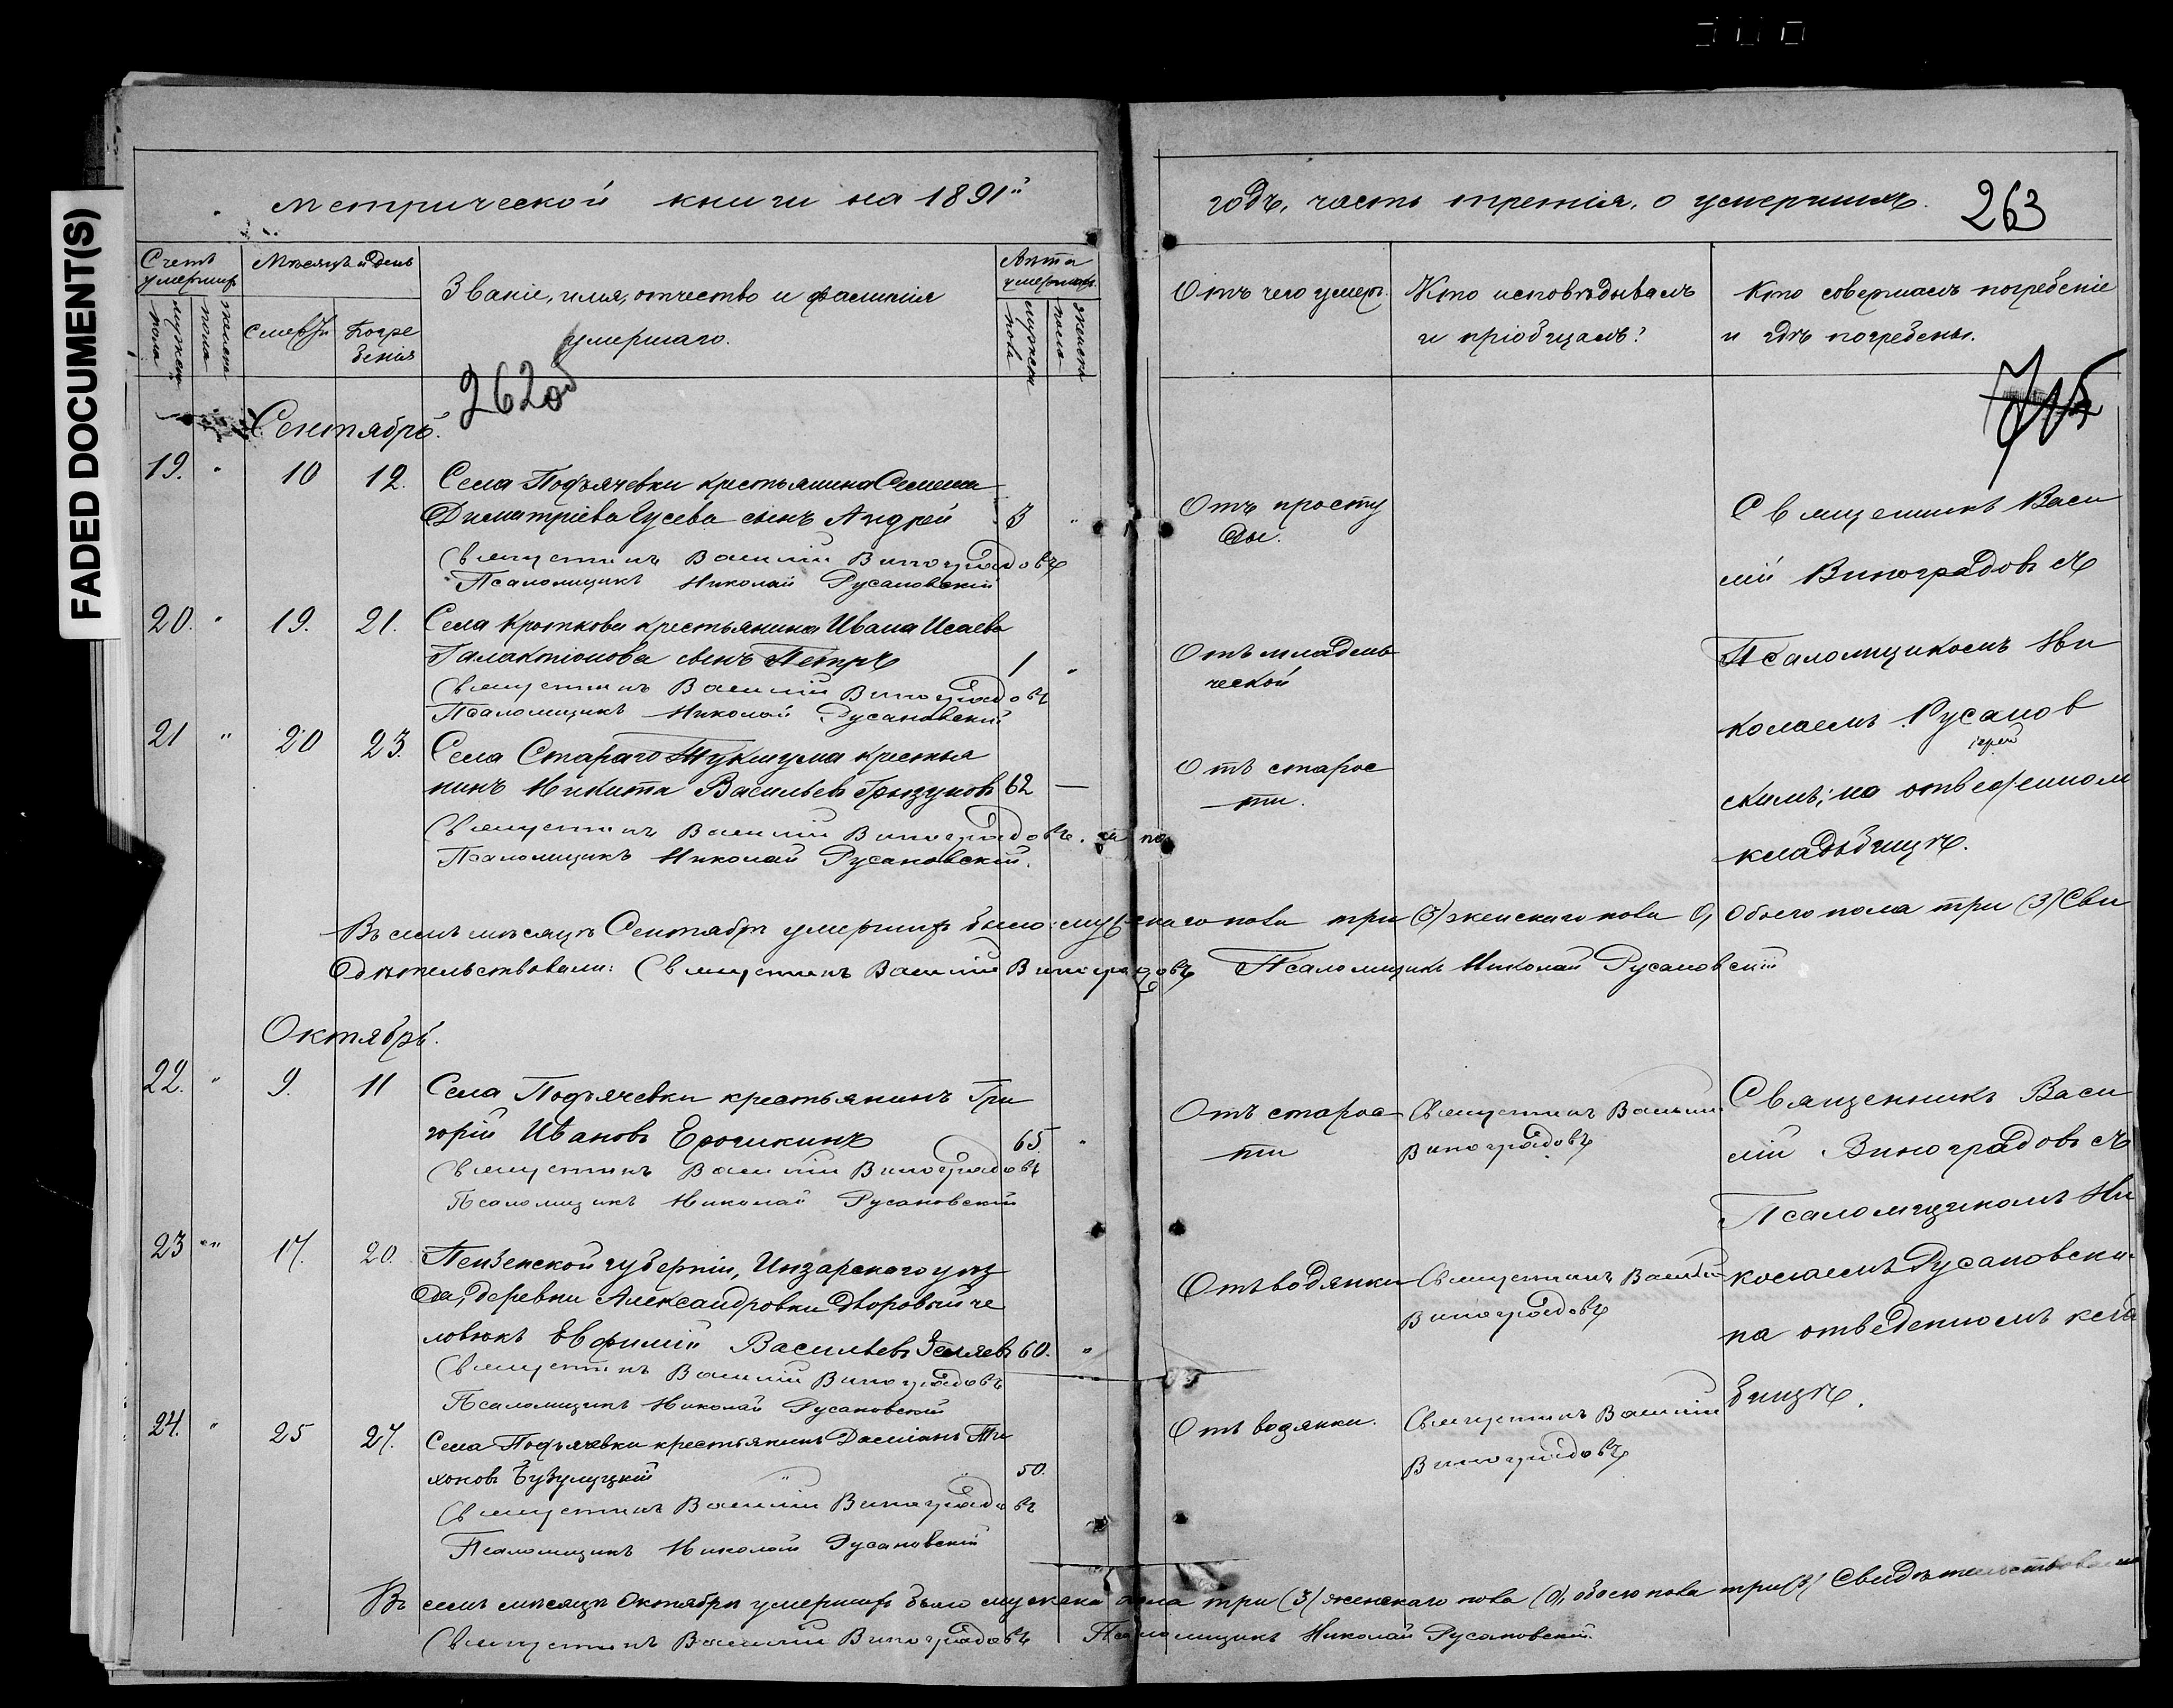 FADED DOCUMENT(S)
метрической книги на 1891й
Счетъ умершихъ
мужеска пола
женска пола
Мѣсяцъ и день
Смерти
Погребенія
Званіе, имя, отчество и фамилія
умершаго.
Лѣта умершихъ
мужеска пола
женска пола
262об
Сентябрь.
19. " 10 12. Села Подъячевки крестьянина Семена
Димитріева Гусева сынъ Андрей 3 "
Священникъ Василій Виноградовъ
Псаломщикъ Николай Русановскій
20. " 19. 21. Села Кроткова крестьянина Ивана Исаева
Галактіонова сынъ Петръ 1 "
Священникъ Василій Виноградовъ
Псаломщикъ Николай Русановскій
21 " 20 23. Села Стараго Тукшума крестья
нинъ Никита Васильевъ Грызуновъ 62 —
Священникъ Василій Виноградовъ.
Псаломщикъ Николай Русановскій.
Въ семъ мѣсяцѣ Сентябрѣ умершихъ было: мужескаго пола три (3) женскаго пола 0, Обоего пола три (3) Сви
дѣтельствовали: Священникъ Василій Виноградовъ Псаломщикъ Николай Русановскій
Октябрь.
22. " 9. 11 Села Подъячевки крестьянинъ Гри
горій Ивановъ Ерочкинъ 65. "
Священникъ Василій Виноградовъ
Псаломщикъ Николай Русановскій
23 " 17. 20. Пензенской губерніи, Инзарскаго уѣз
да, деревни Александровки дворовый че
ловѣкъ Евфимій Васильевъ 60. "
Священникъ Василій Виноградовъ
Псаломщикъ Николай Русановскій
24. " 25 27. Села Подъячевки крестьянинъ Даміанъ Ти
хоновъ Бузулуцкій 50.
Священникъ Василій Виноградовъ
Псаломщикъ Николай Русановскій
Въ семъ мѣсяцѣ Октябрѣ умершихъ было мужска пола три (3) женскаго пола (0), обоего пола три (3) Свидѣтельствовали
Священникъ Василій Виноградовъ Псаломщикъ Николай Русановскій.
годъ, часть третія, о умершихъ.
263
Отъ чего умеръ.
Кто исповѣдывалъ
и пріобщалъ?
Кто совершалъ погребеніе
и гдѣ погребены.
Отъ просту
ды.
Отъ младен
ческой
Отъ старос
ти.
Священникъ Васи
лій Виноградовъ съ
Псаломщикомъ Ни
колаемъ Русанов
скимъ; на отведенном
кладбищѣ.
Отъ старос
ти
Священникъ Василій
Виноградовъ
Отъ водянки
Священникъ Василій
Виноградовъ
Отъ водянки.
Священникъ Василій
Виноградовъ
Священникъ Васи
лій Виноградовъ съ
Псаломщикомъ Ни
колаемъ Русановски
на отведенномъ клад
бищѣ.